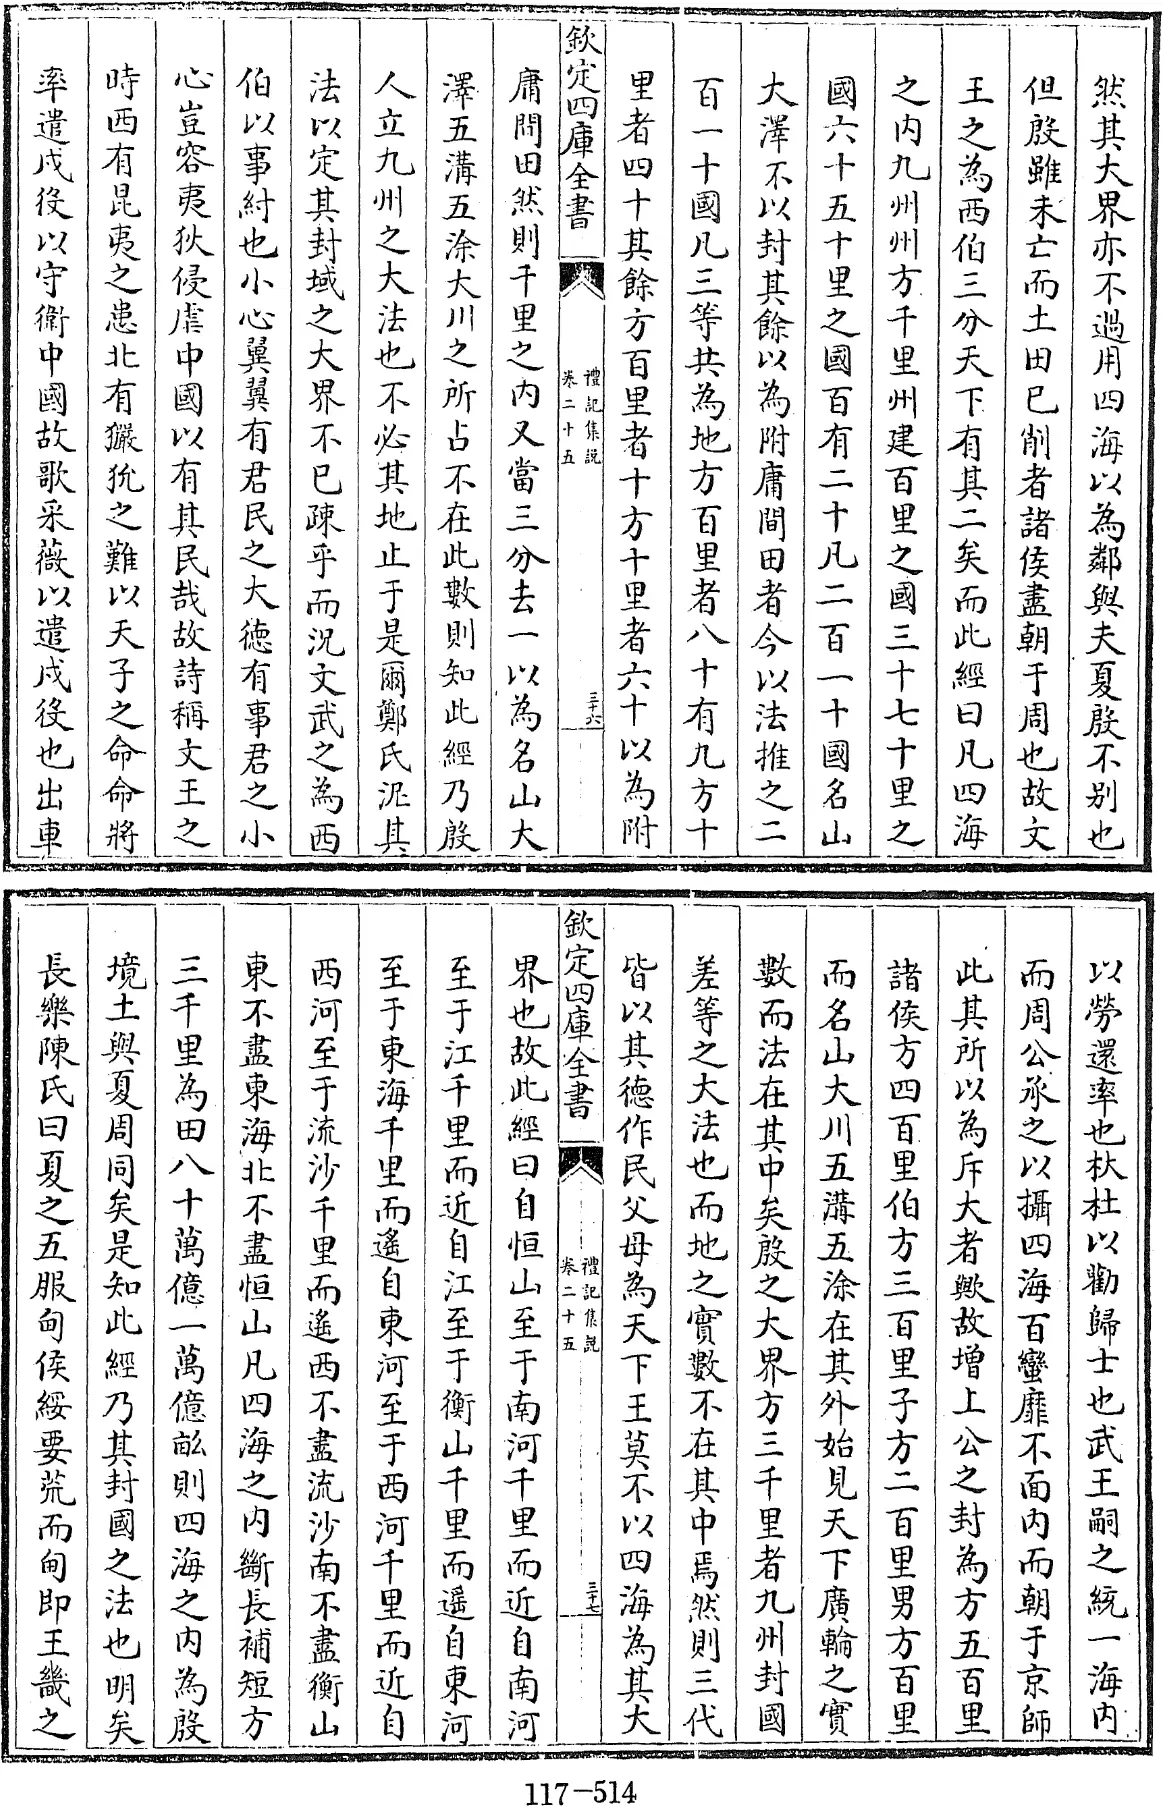 然其大界亦不過用四海以為鄰與夫夏殷不别也
但殷雖未亡而土田已削者諸侯盡朝于周也故文
王之為西伯三分天下有其二矣而此經曰凡四海
之内九州州方千里州建百里之國三十七十里之
國六十五十里之國百有二十凡二百一十國名山
大澤不以封其餘以為附庸間田者今以法推之二
百一十國凡三等共為地方百里者八十有九方十
里者四十其餘方百里者十方十里者六十以為附
欽定四庫全書
禮記集説
卷二十五
三十六
庸間田然則千里之内又當三分去一以為名山大
澤五溝五涂大川之所占不在此數則知此經乃殷
人立九州之大法也不必其地止于是爾鄭氏泥其
法以定其封域之大界不已疎乎而況文武之為西
伯以事紂也小心翼翼有君民之大德有事君之小
心豈容夷狄侵虐中國以有其民哉故詩稱文王之
時西有昆夷之患北有玁狁之難以天子之命命將
率遣戍役以守衛中國故歌采薇以遣戍役也出車
以勞還率也杕杜以勸歸士也武王嗣之統一海内
而周公承之以攝四海百蠻靡不面内而朝于京師
此其所以為斥大者歟故增上公之封為方五百里
諸侯方四百里伯方三百里子方二百里男方百里
而名山大川五溝五涂在其外始見天下廣輪之實
數而法在其中矣殷之大界方三千里者九州封國
差等之大法也而地之實數不在其中焉然則三代
皆以其德作民父母為天下王莫不以四海為其大
欽定四庫全書
禮記集説
卷二十五
三十七
界也故此經曰自恒山至于南河千里而近自南河
至于江千里而近自江至于衡山千里而遥自東河
至于東海千里而遥自東河至于西河千里而近自
西河至于流沙千里而遥西不盡流沙南不盡衡山
東不盡東海北不盡恒山凡四海之内斷長補短方
三千里為田八十萬億一萬億畝則四海之内為殷
境土與夏周同矣是知此經乃其封國之法也明矣
長樂陳氏曰夏之五服甸侯綏要荒而甸即王畿之
117-514